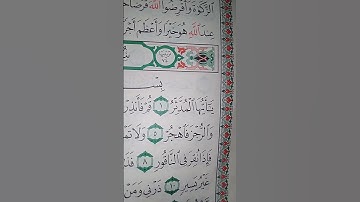 ٱلزَّكَوٰةَ وَأَقْرِضُوا۟ ٱللَّهَ قَرْضًا
عِندَ ٱللَّهِ هُوَ خَيْرًا وَأَعْظَمَ أَجْرً
بِسْـ
يَـٰٓأَيُّهَا ٱلْمُدَّثِّرُ ١ قُمْ فَأَنذِرْ
وَٱلرُّجْزَ فَٱهْجُرْ ٥ وَلَا تَمْ
فَإِذَا نُقِرَ فِى ٱلنَّاقُورِ ٨ فَذَ
غَيْرُ يَسِيرٍ ١٠ ذَرْنِى وَمَنْ